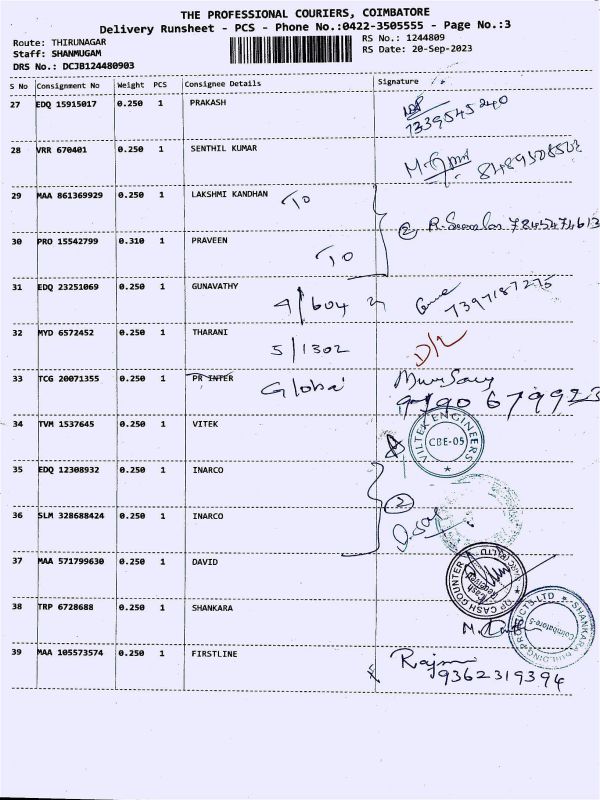 THE PROFESSIONAL COURIERS, COIMBATORE
Delivery Runsheet - PCS - Phone No.:0422-3505555 - Page No.:3
Route: THIRUNAGAR
Staff: SHANMUGAM
DRS No.: DCJB124480903
RS No.: 1244809
RS Date: 20-Sep-2023
S No Consignment No Weight PCS Consignee Details Signature
27 EDQ 15915017 0.250 1 PRAKASH
7339545240
28 VRR 670401 0.250 1 SENTHIL KUMAR
8489508502
29 MAA 861369929 0.250 1 LAKSHMI KANDHAN TO
② 7845474613
30 PRO 15542799 0.310 1 PRAVEEN
TO
31 EDQ 23251069 0.250 1 GUNAVATHY
9/604 7397187275
32 MYD 6572452 0.250 1 THARANI
5/1302 D/L
33 TCG 20071355 0.250 1 PR INTER Global
9790 679923
34 TVM 1537645 0.250 1 VITEK
VILTEK ENGINEERS
CBE-05
35 EDQ 12308932 0.250 1 INARCO
②
36 SLM 328688424 0.250 1 INARCO
37 MAA 571799630 0.250 1 DAVID
CASH COUNTER
38 TRP 6728688 0.250 1 SHANKARA
SHANKARA BUILDING PRODUCTS LTD
Coimbatore-5
39 MAA 105573574 0.250 1 FIRSTLINE
9362319394